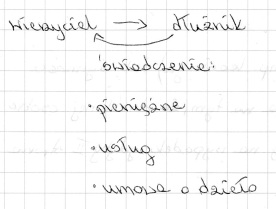 wierzyciel → dłużnik
świadczenie:
• pieniężne
• usług
• umowa o dzieło